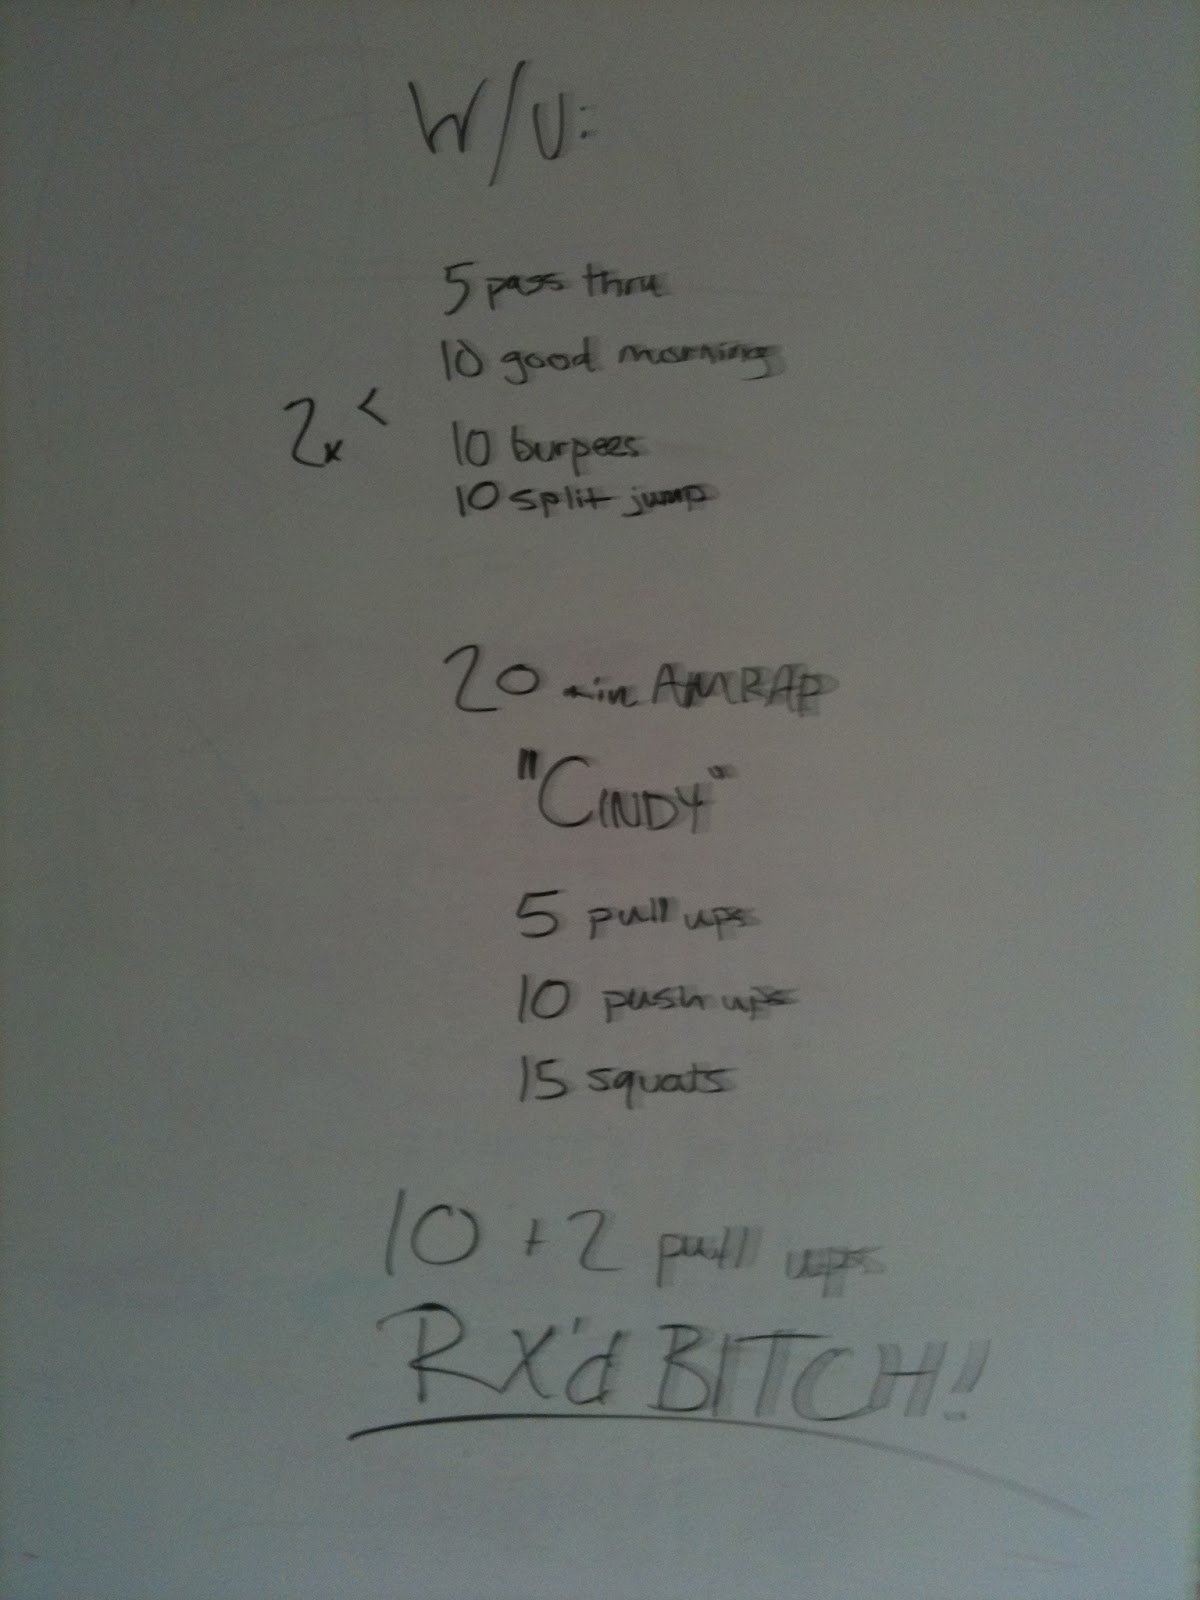 W/U:
5 pass thru
10 good morning
2x <
10 burpees
10 split jump
20 min AMRAP
"CINDY"
5 pull ups
10 push ups
15 squats
10 + 2 pull ups
RX'd BITCH!